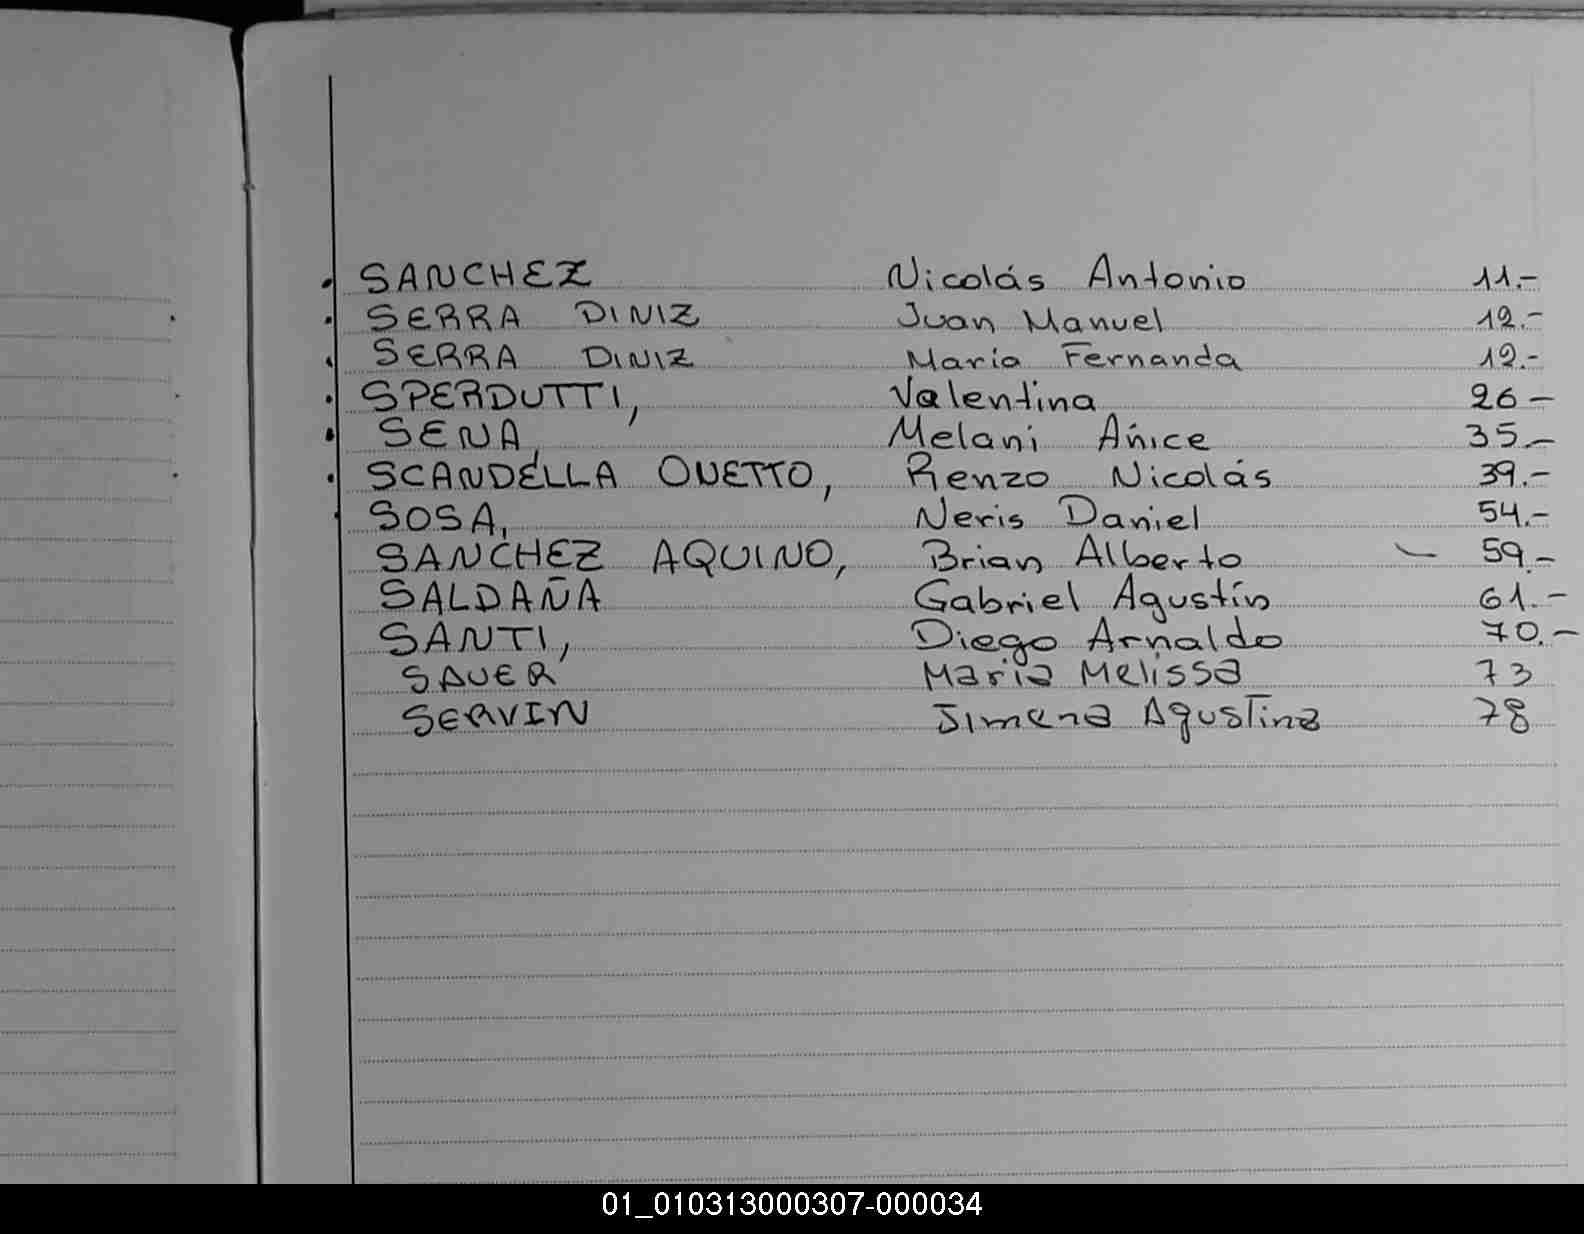 SANCHEZ Nicolás Antonio 11.-
SERRA DINIZ Juan Manuel 12.-
SERRA DINIZ María Fernanda 12.-
SPERDUTTI, Valentina 26-
SENA, Melani Anice 35.-
SCANDELLA ONETTO, Renzo Nicolás 39.-
SOSA, Neris Daniel 54.-
SANCHEZ AQUINO, Brian Alberto - 59.-
SALDAÑA Gabriel Agustín 61.-
SANTI, Diego Arnaldo 70.-
SAUER Maria Melissa 73
SERVIN Jimena Agustina 78
01_010313000307-000034